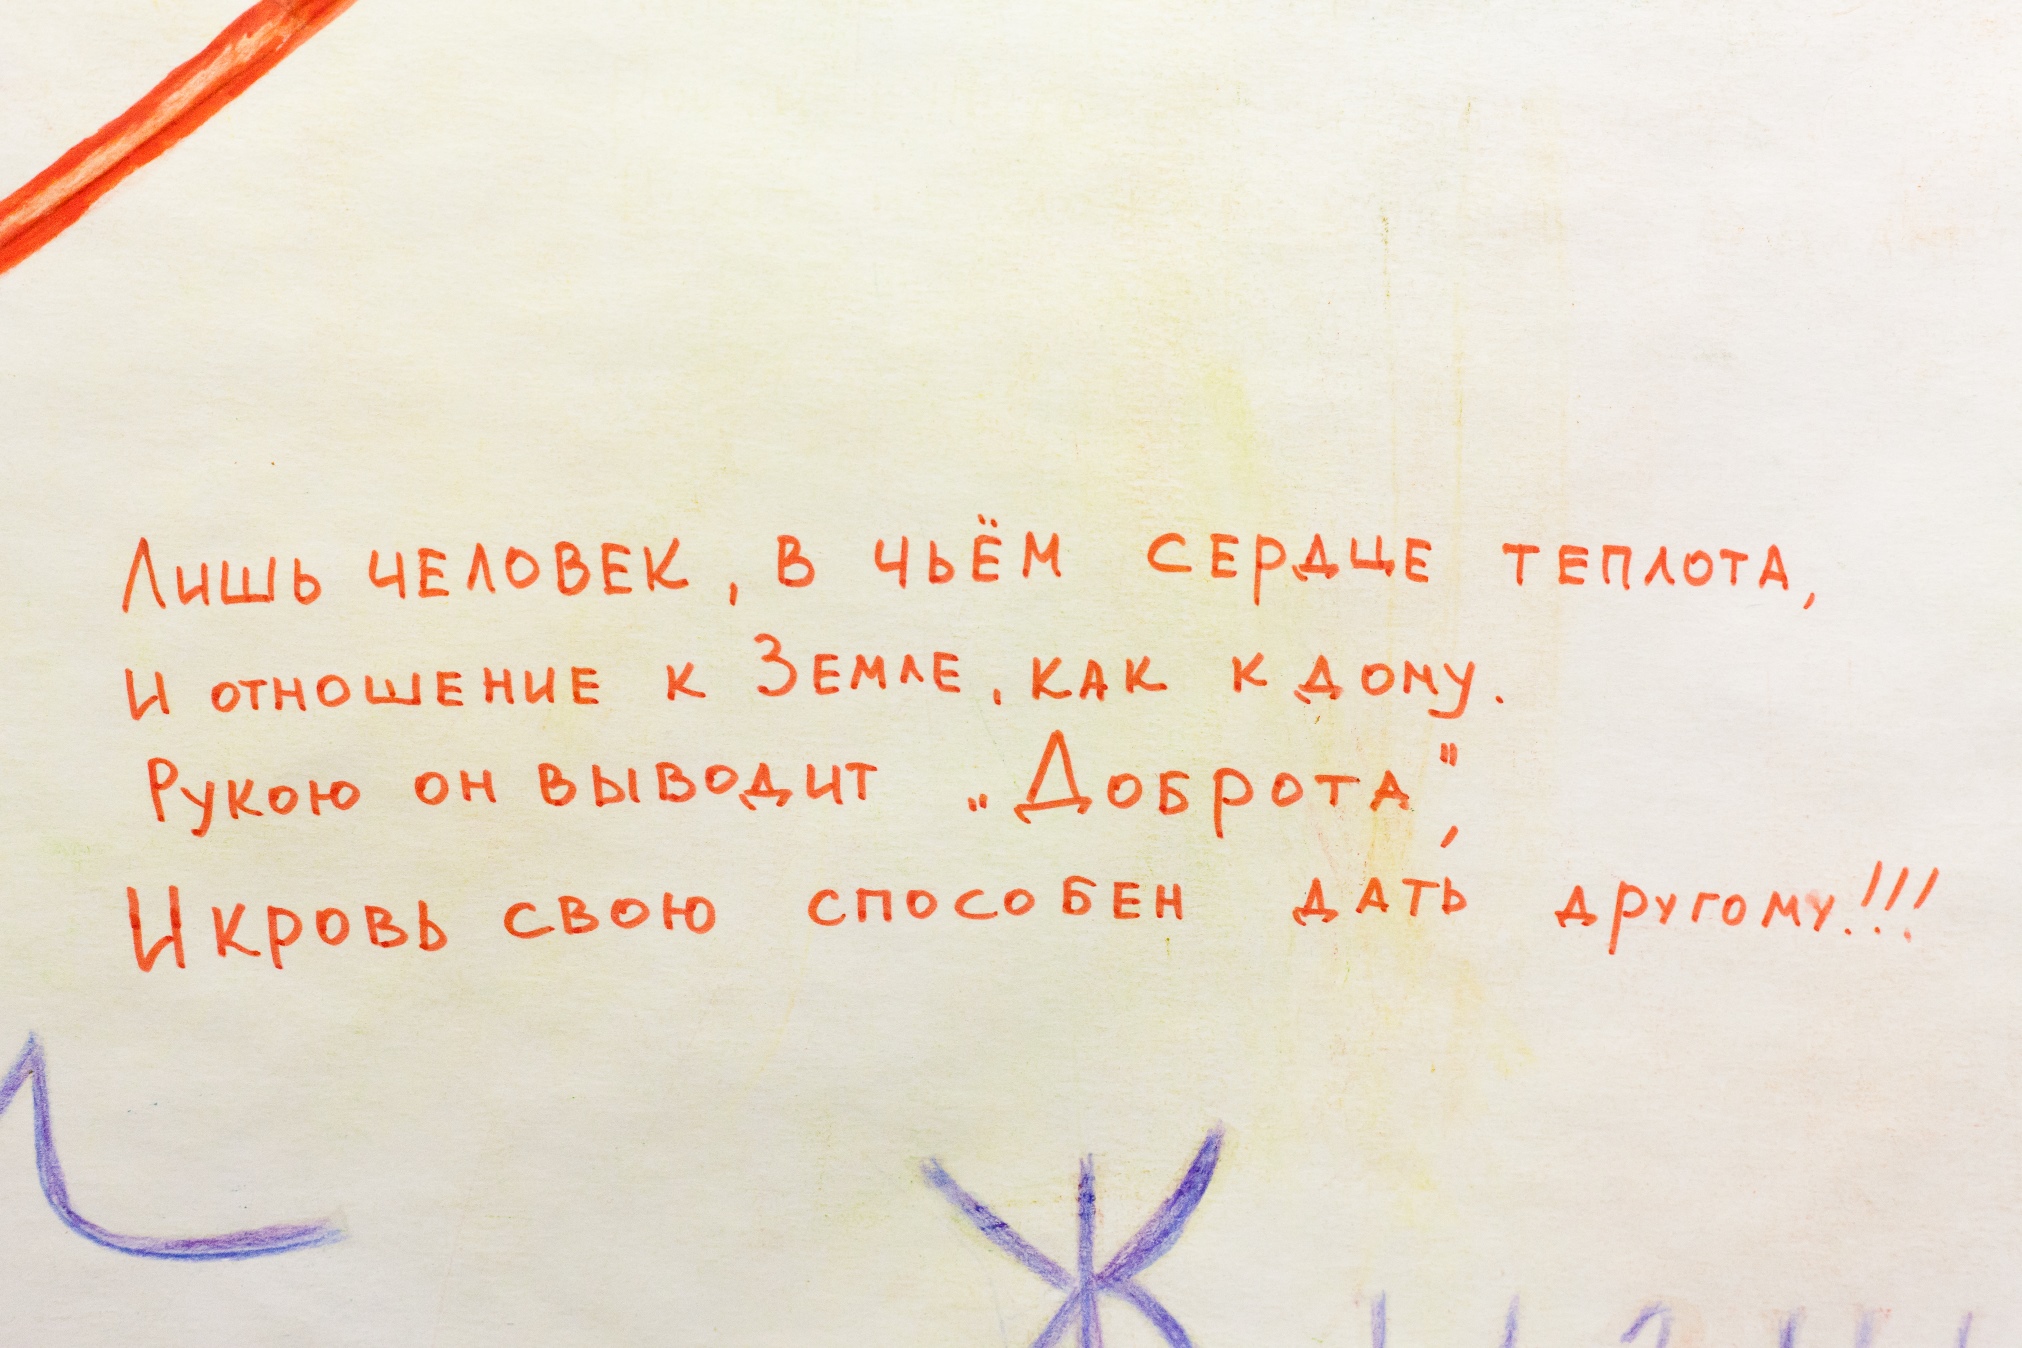 Лишь человек, в чьём сердце теплота,
и отношение к Земле, как к дому.
Рукою он выводит „Доброта",
И кровь свою способен дать другому!!!